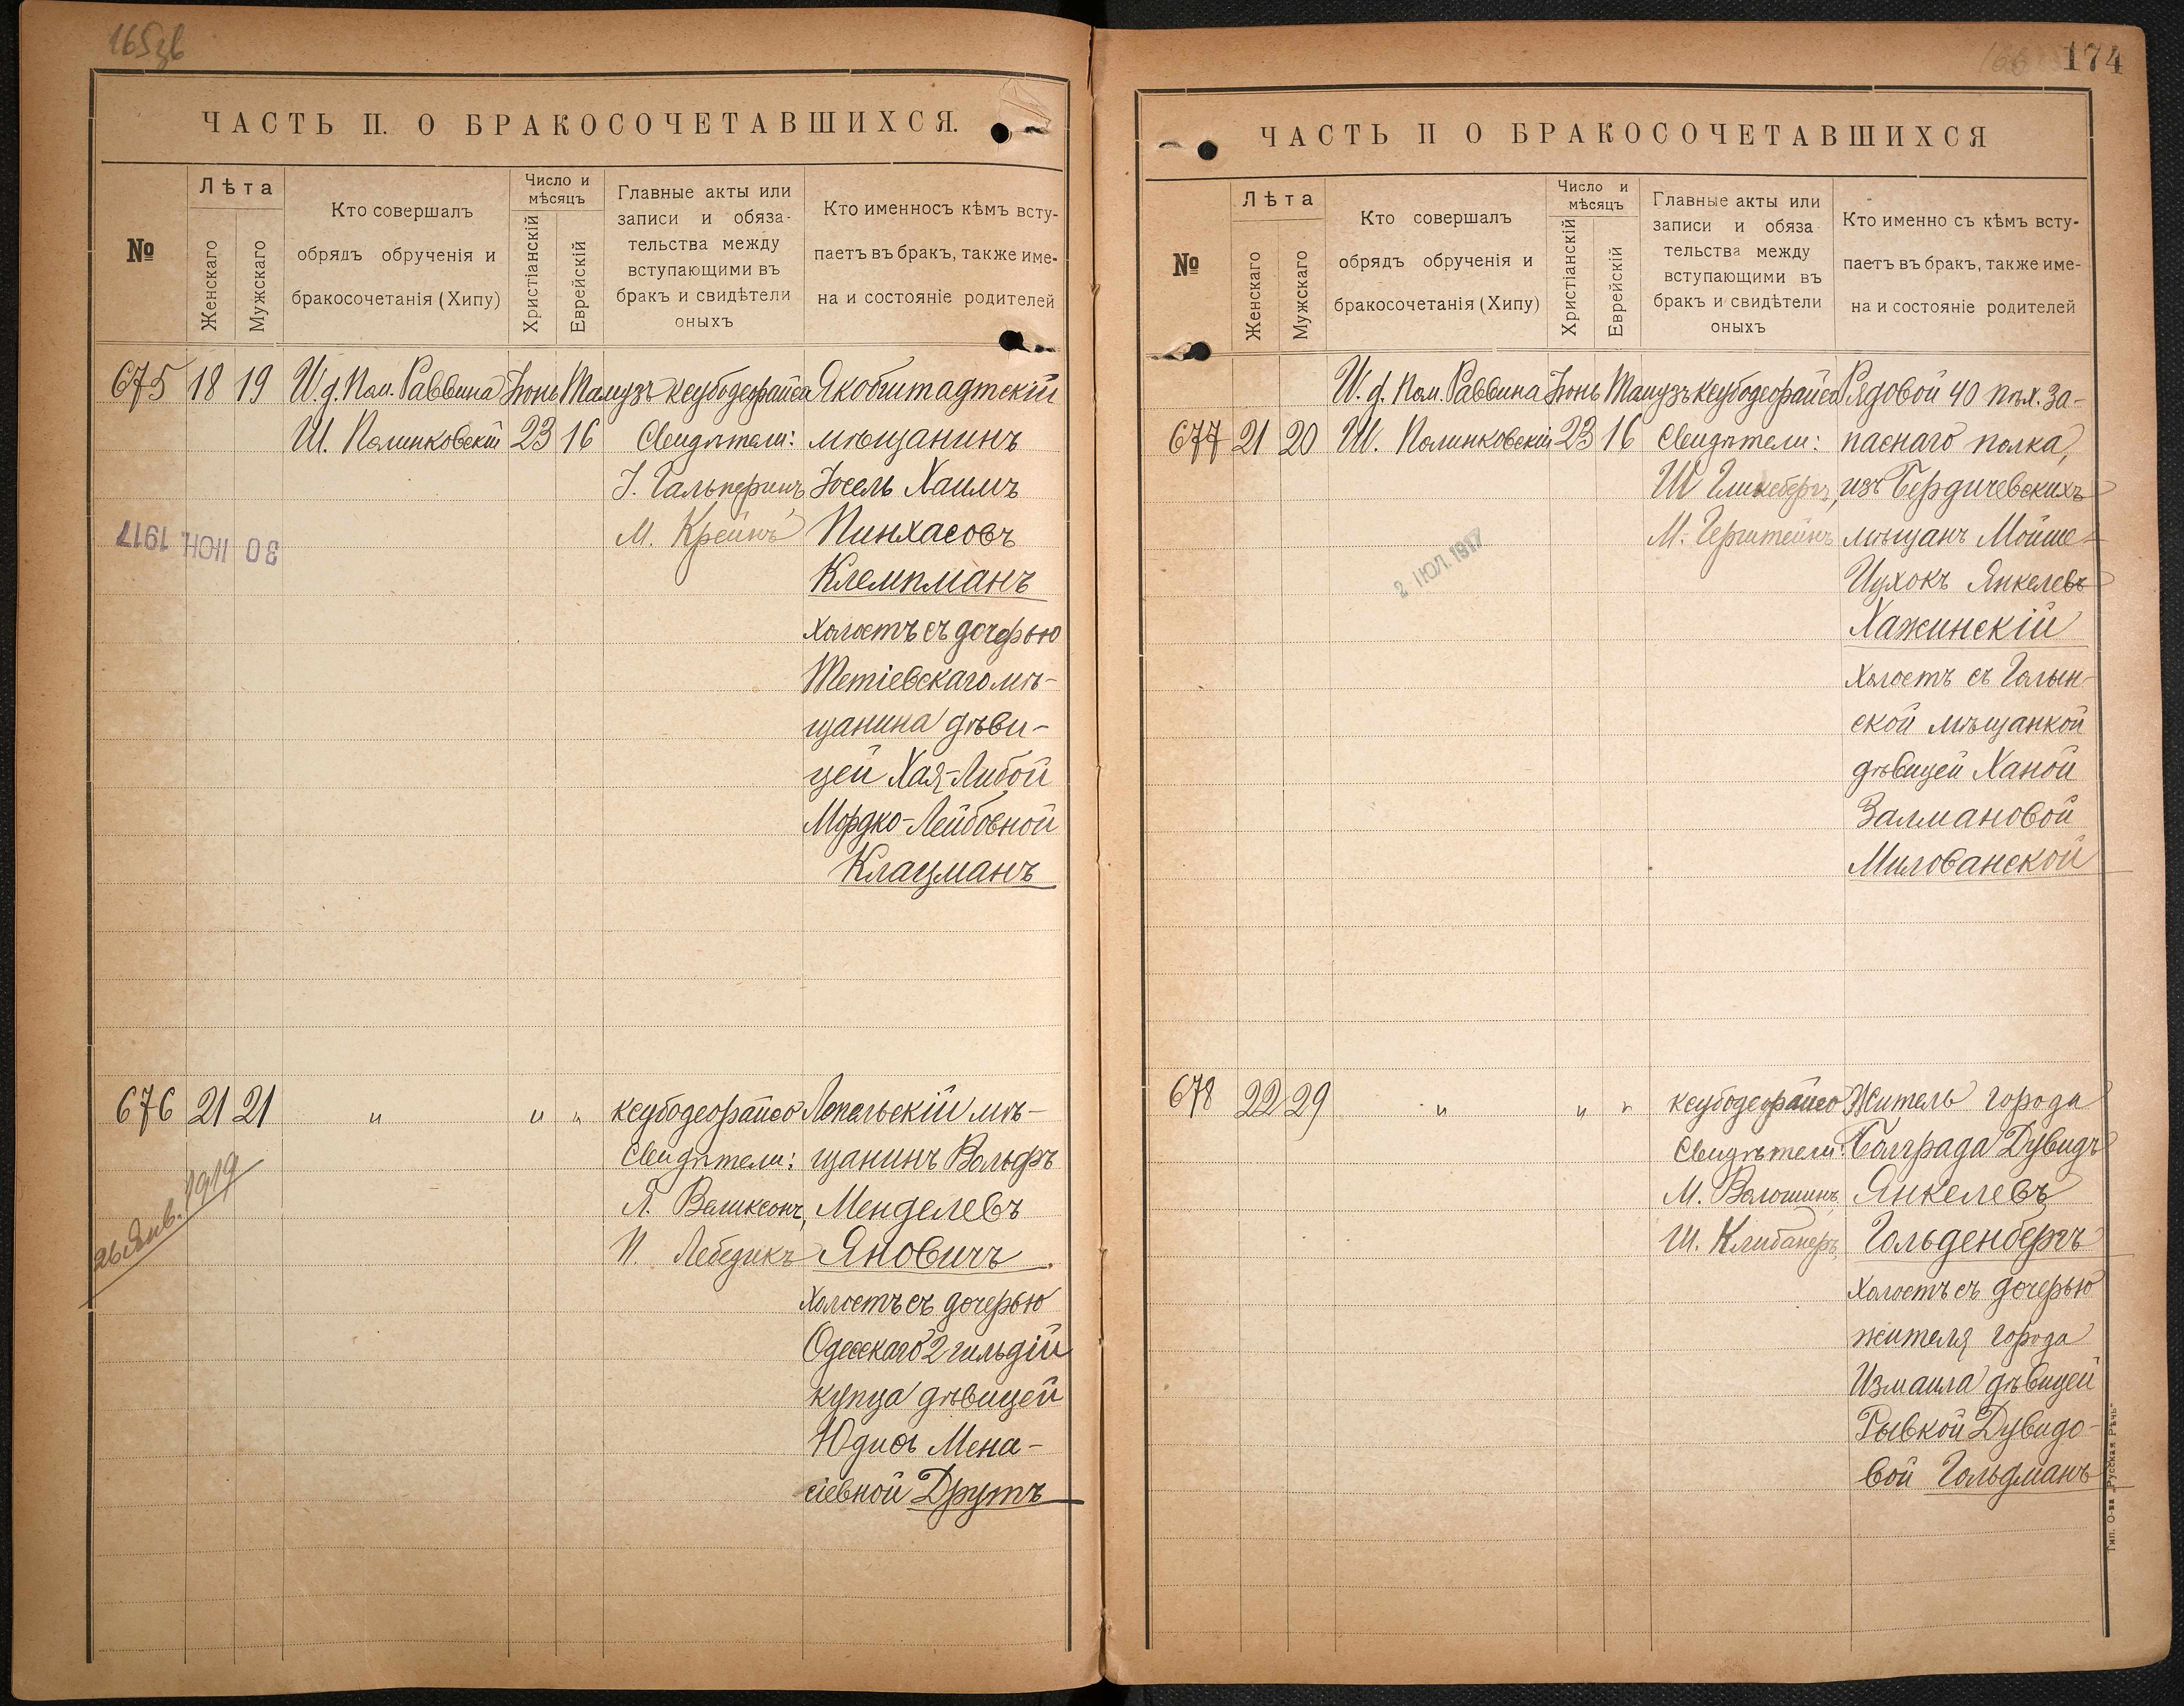 165зв
ЧАСТЬ II. О БРАКОСОЧЕТАВШИХСЯ.
№
Лѣта
Женскаго
Мужскаго
Кто совершалъ
обрядъ обрученія и
бракосочетанія (Хипу)
Число и
мѣсяцъ
Христіанскій
Еврейскій
Главные акты или
записи и обяза-
тельства между
вступающими въ
бракъ и свидѣтели
оныхъ
Кто именносъ кѣмъ всту-
паетъ въ бракъ, также име-
на и состояніе родителей
675 18 19 И.д. Пом. Раввина Іюнь Тамузъ ксубодеорайса Якобштадтскій
Ш. Полинковскій 23 16 Свидѣтели: мѣщанинъ
І. Гальперинъ, Іосель Хаимъ
М. Крейнъ Пинхасовъ
30 ІЮН. 1917
Клемпманъ
холостъ съ дочерью
Тетіевскаго мѣ-
щанина дѣви-
цей Хая-Либой
Мордко-Лейбовной
Клацманъ
676 21 21 " " " ксубодеорайсо Лепельскій мѣ-
Свидѣтели: щанинъ Вольфъ
Л. Великсонъ, Менделевъ
П. Лебедикъ Яновичъ
26 Янв. 1919
холостъ съ дочерью
Одесскаго 2 гильдіи
купца дѣвицей
Юдисъ Мена-
сіевной Друтъ
174
ЧАСТЬ II О БРАКОСОЧЕТАВШИХСЯ
№
Лѣта
Женскаго
Мужскаго
Кто совершалъ
обрядъ обрученія и
бракосочетанія (Хипу)
Число и
мѣсяцъ
Христіанскій
Еврейскій
Главные акты или
записи и обяза
тельства между
вступающими въ
бракъ и свидѣтели
оныхъ
Кто именно съ кѣмъ всту-
паетъ въ бракъ, также име-
на и состояніе родителей
И. д. Пом. Раввина Іюнь Тамузъ ксубодеорайса Рядовой 40 пѣх. за-
677 21 20 Ш. Полинковскій 23 16 Свидѣтели: паснаго полка,
Ш изъ Бердичевскихъ
М. Герштейнъ, мѣщанъ Мойше-
2 ІЮЛ. 1917
Ицхокъ Янкелевъ
Хажинскій
холостъ съ Голын-
ской мѣщанкой
дѣвицей Ханой
Залмановой
Милованской
678 22 29 " " " ксубодеорайсо Житель города
Свидѣтели: Болграда Дувидъ
М. Волошинъ, Янкелевъ
Ш. Клибанеръ, Гольденбергъ
холостъ съ дочерью
жителя города
Измаила дѣвицей
Рывкой Дувидо-
вой Гольдманъ
Тип. О-ва „Русская Рѣчь“